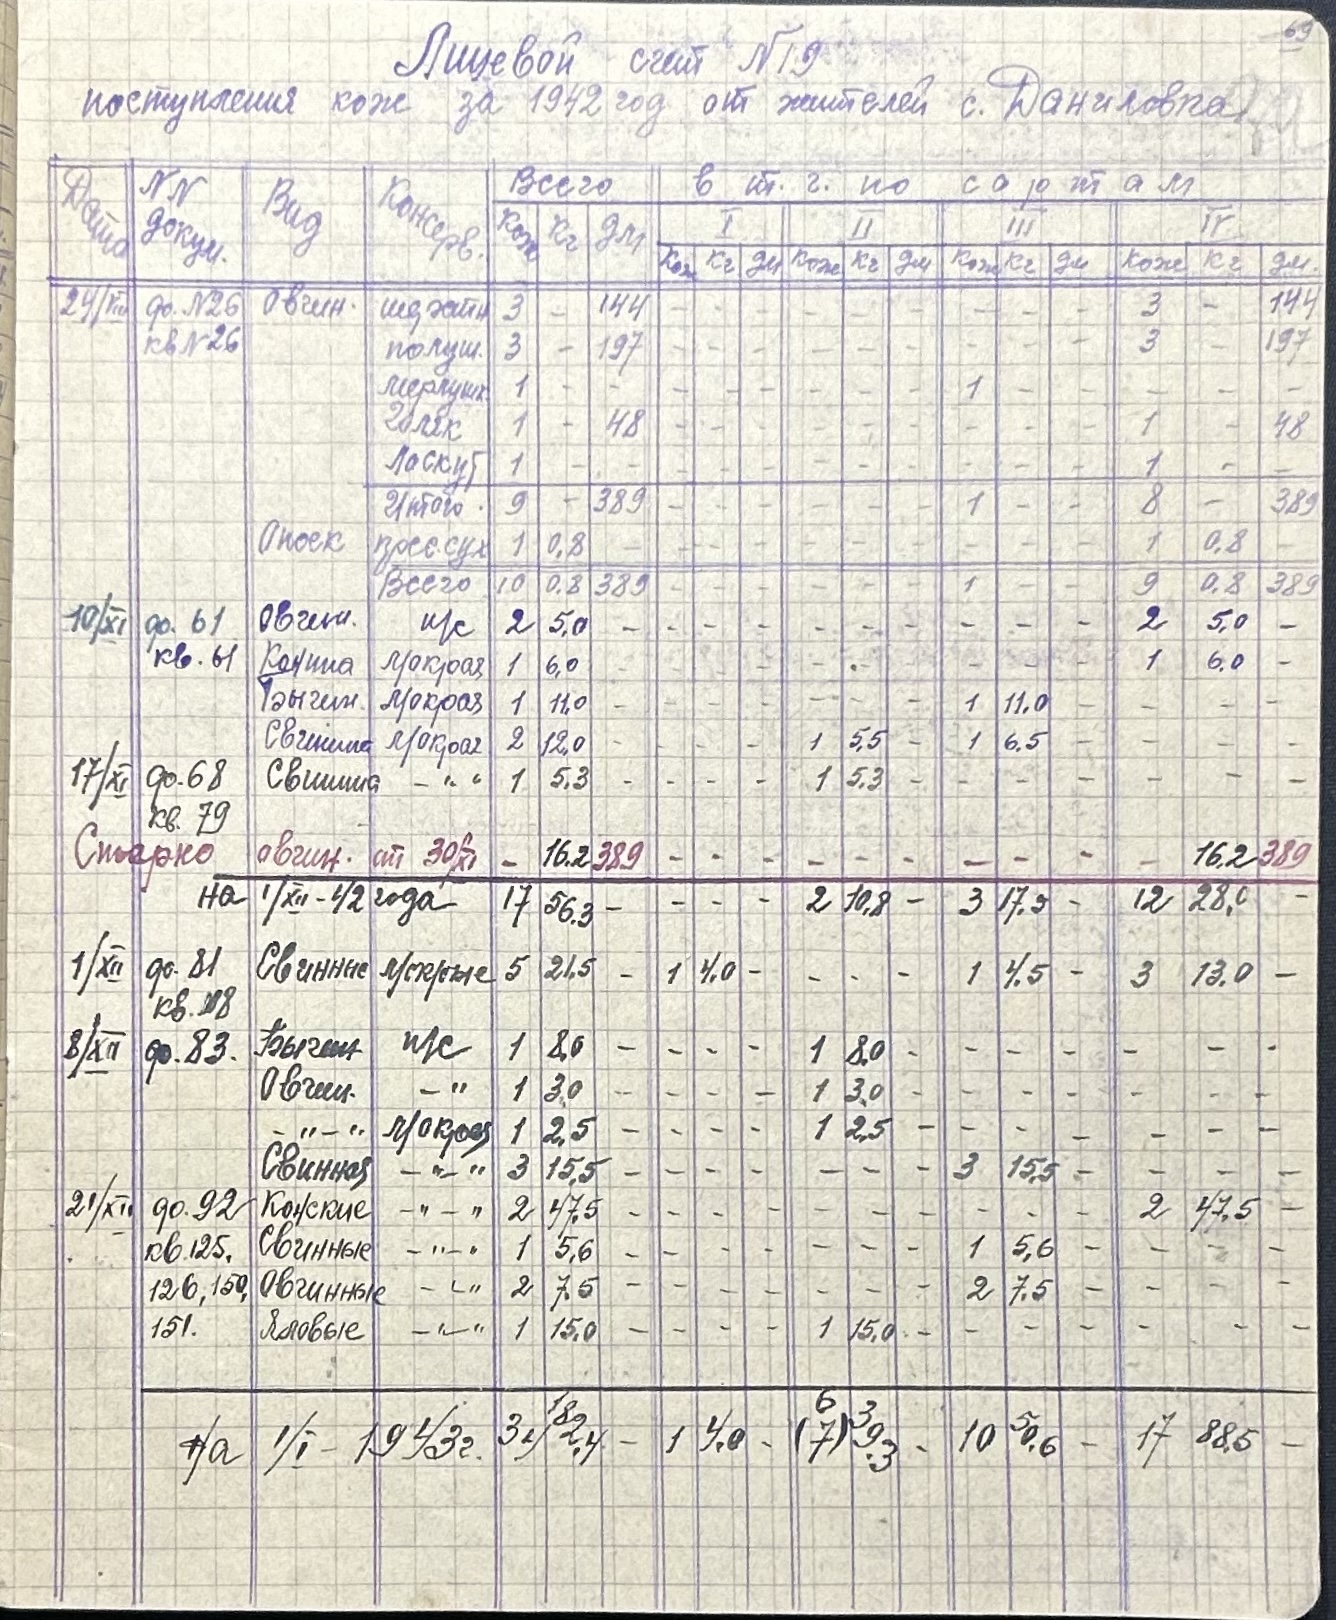 69
Лицевой счет №19
поступления кож за 1942 год от жителей с. Даниловка
Дата NN докум. Вид Консерв. Всего в т.ч. по сортам
I II III IV
Кож Кг дм Кож Кг дм Кож Кг дм Кож Кг дм Кож Кг дм.
24/VIII до. №26 Овчин. шерстн 3 - 144 - - - - - - - - - 3 - 144
кв №26 полуш. 3 - 197 - - - - - - - - - 3 - 197
мерлушк 1 - - - - - - - - 1 - - - - -
Голяк 1 - 48 - - - - - - - - - 1 - 48
Лоскут 1 - - - - - - - - - - - 1 - -
Итого. 9 - 389 - - - - - - 1 - - 8 - 389
Опоек пресс.сух 1 0,8 - - - - - - - - - - 1 0,8 -
Всего 10 0.8 389 - - - - - - 1 - - 9 0.8 389
10/XI до. 61 Овчин. м/с 2 5,0 - - - - - - - - - - 2 5,0 -
кв. 61 Конина Мокрая 1 6,0 - - - - - - - - - - 1 6.0 -
Бычин. Мокрая 1 11.0 - - - - - - - 1 11.0 - - - -
Свинина Мокрая 2 12,0 - - - - 1 5,5 - 1 6.5 - - - -
17/XI до. 68 Свинина - " " 1 5.3 - - - - 1 5.3 - - - - - - -
кв. 79
Сторно овчин. от 30/XI - 16.2 389 - - - - - - - - - - 16.2 389
на 1/XII - 42 года 17 56.3 - - - - 2 10,8 - 3 17.5 - 12 28,0 -
1/XII до. 81 Свинные Мокрые 5 21.5 - 1 4.0 - - - - 1 4.5 - 3 13.0 -
кв. 118
8/XII до. 83. Бычин м/с 1 8,0 - - - - 1 8,0 - - - - - - -
Овчин. - " 1 3,0 - - - - 1 3,0 - - - - - - -
- " - " Мокрая 1 2,5 - - - - 1 2.5 - - - - - - -
Свинная - " - " 3 15,5 - - - - - - - 3 15,5 - - - -
21/XII до. 92 Конские - " - " 2 47.5 - - - - - - - - - - 2 47.5 -
кв. 125, Свинные - " - " 1 5,6 - - - - - - - 1 5,6 - - - -
126, 150, Овчинные - " - " 2 7.5 - - - - - - - 2 7.5 - - - -
151. Яловые - " - " 1 15,0 - - - - 1 15,0 - - - - - - -
На 1/I - 1943 г. 34 182,4 - 1 4.0 - 6 (7) 39.3 - 10 50,6 - 17 88.5 -